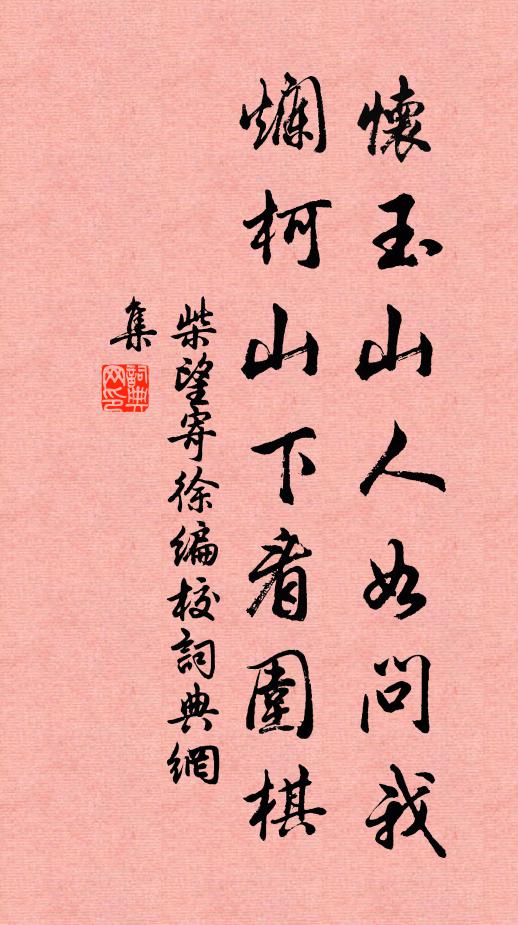 懷玉山人如問我
爛柯山下看圍棋
柴望寄徐編校詞典網
集
詞典
网印